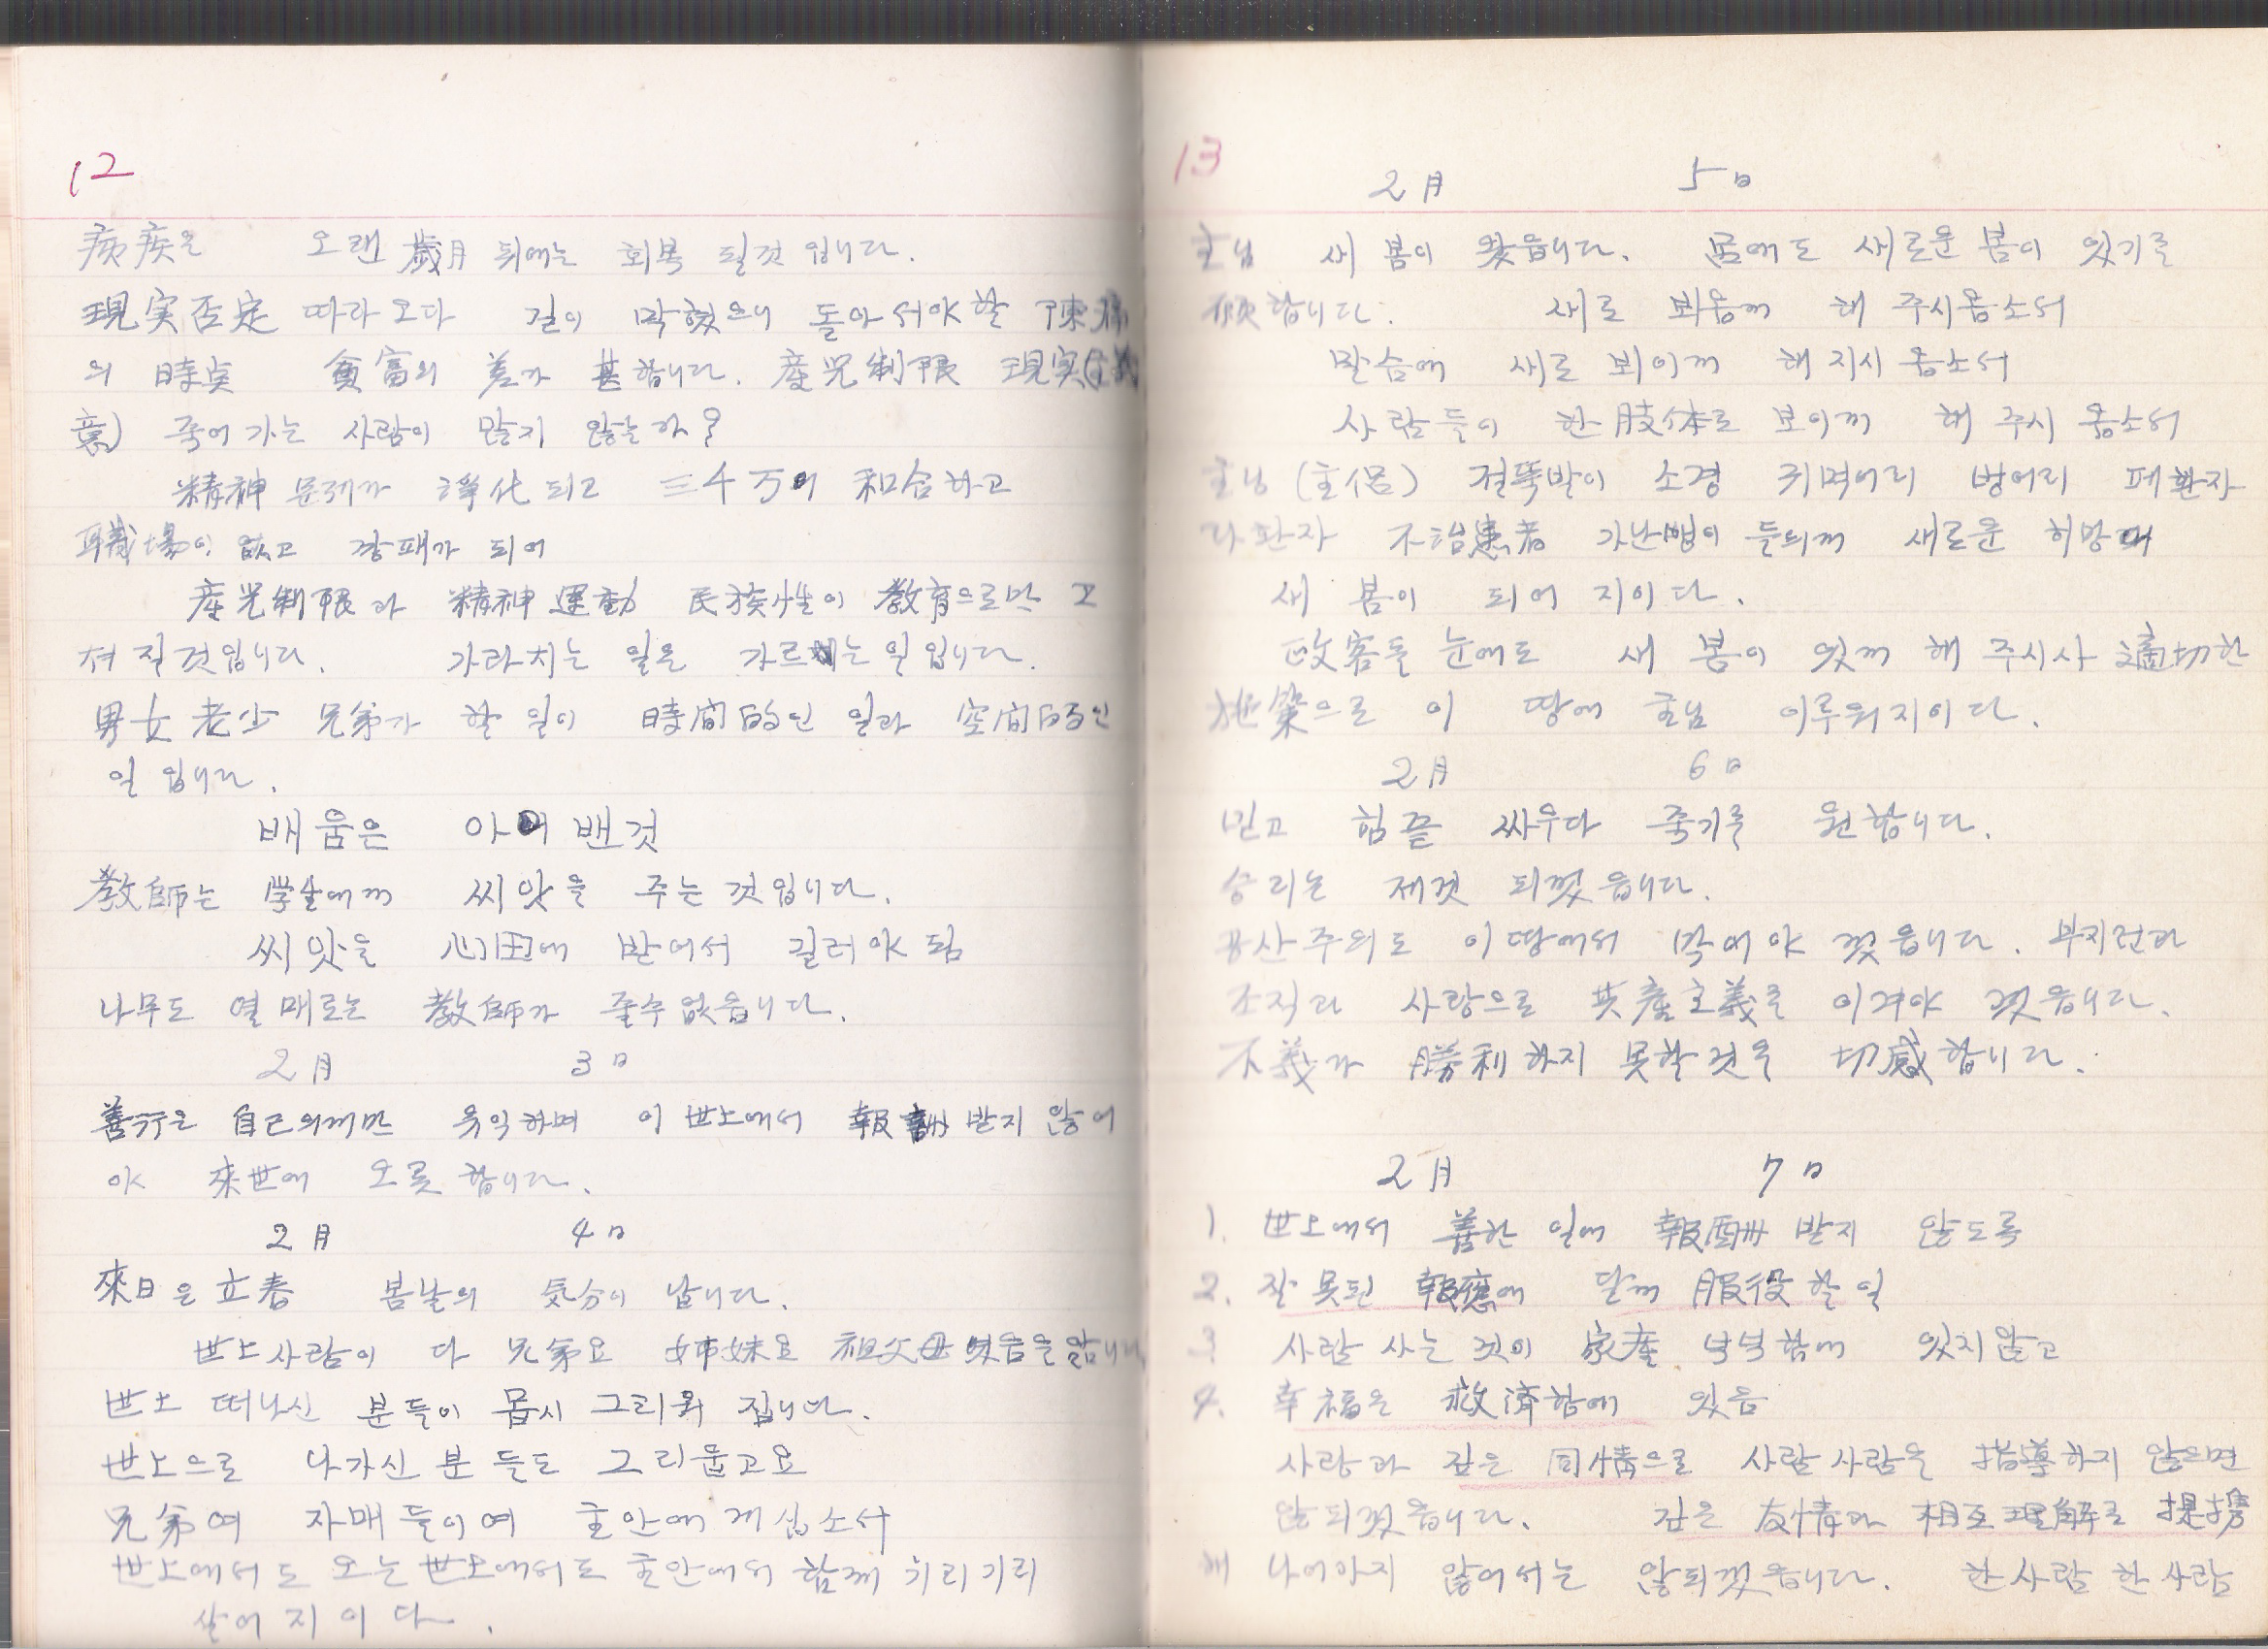 12
病疾은 오랜 歲月 뒤에는 회복 될것 입니다.
現実否定 따라 오다 길이 막혔으니 돌아서야할
의 時点 貧富의 差가 甚합니다. 産児制限 現実
죽어 가는 사람이 많지 않는가?
精神 문제가 淨化 되고 三千万이 和合하고
職場이 없고 깡패가 되어
産児制限과 精神運動 民族性이 敎育으로만 고
쳐 질것입니다. 가라치는 일은 가르치는 일입니다.
男女老少 兄弟가 할 일이 時間的인 일과 空間的인
일 입니다.
배움은 아이 밴것
敎師는 学生에께 씨앗을 주는 것입니다.
씨앗을 心田에 받어서 길러야 됨
나무도 열매로는 敎師가 줄수 없읍니다.
2月 3日
善行은 自己의께만 유익하며 이 世上에서 報酬 받지 않어
야 來世에 오롯합니다.
2月 4日
來日은 立春 봄날의 気分이 납니다.
世上사람이 다 兄弟요 姉妹요 祖父母 였음을 압니다
世上 떠나신 분들이 몹시 그리워 집니다.
世上으로 나가신 분들도 그리웁고요
兄弟여 자매들이여 主안에 계십소서
世上에서도 오는 世上에서도 主안에서 함께 기리기리
살어지이다.
13
2月 5日
主님 새 봄이 왔읍니다. 몸에도 새로운 봄이 있기를
願합니다. 새로 뵈옵께 해 주시옵소서
말슴에 새로 뵈이께 해 지시옵소서
사람들이 한 肢体로 보이께 해 주시옵소서
主님 (主侶) 절뚝발이 소경 귀먹어리 벙어리 폐환자
라환자 不治患者 가난뱅이 들의께 새로운 희망에
새 봄이 되어 지이다.
政客들 눈에도 새 봄이 있께 해 주시사 適切한
施策으로 이 땅에 主님 이루워지이다.
2月 6日
믿고 힘끝 싸우다 죽기를 원합니다.
승리는 제것 되겠읍니다.
공산주의도 이땅에서 막어야 겠읍니다. 부지런과
조직과 사랑으로 共産主義를 이겨야 겠읍니다.
不義가 勝利하지 못할것을 切感합니다.
2月 7日
1. 世上에서 善한 일에 報酬 받지 않도록
2. 잘못된 報應에 달께 服役할 일
3 사람 사는 것이 家産 넉넉함에 있지않고
4. 幸福은 救濟함에 있음
사랑과 깊은 同情으로 사람사람을 指導하지 않으면
않되겠읍니다. 깊은 友情과 相互理解로 提携
해 나어가지 않어서는 않되겠읍니다. 한사람 한사람